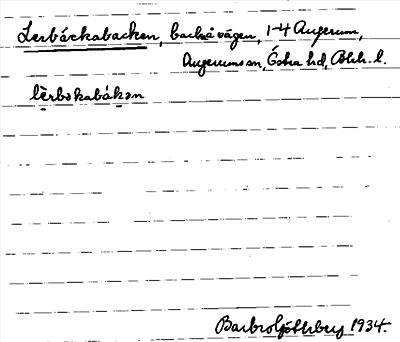 Lerbäckabacken, backe å vägen, 1-4 Augerum,
Augerums sn, Östra hd, Blek. l.
lèrbəkabákən
Barbro Ljöthberg 1934.